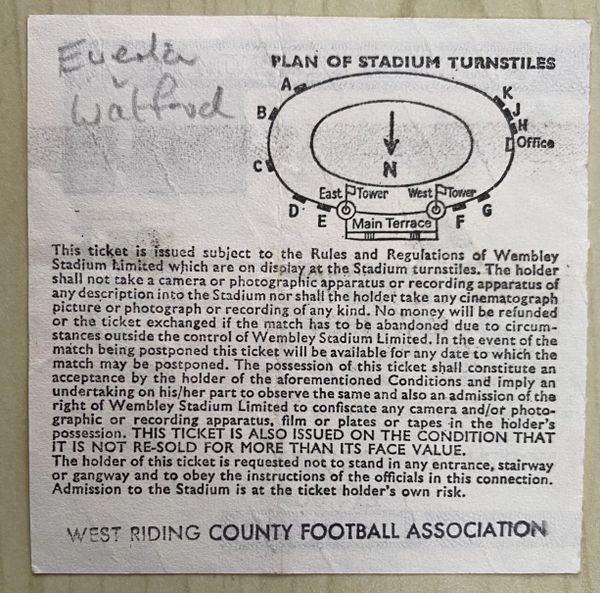 Everton
v
Watford
PLAN OF STADIUM TURNSTILES
A
B
C
D
E
K
J
H
Office
N
East Tower
West Tower
Main Terrace
F
G
This ticket is issued subject to the Rules and Regulations of Wembley
Stadium Limited which are on display at the Stadium turnstiles. The holder
shall not take a camera or photographic apparatus or recording apparatus of
any description into the Stadium nor shall the holder take any cinematograph
picture or photograph or recording of any kind. No money will be refunded
or the ticket exchanged if the match has to be abandoned due to circum-
stances outside the control of Wembley Stadium Limited. In the event of the
match being postponed this ticket will be available for any date to which the
match may be postponed. The possession of this ticket shall constitute an
acceptance by the holder of the aforementioned Conditions and imply an
undertaking on his/her part to observe the same and also an admission of the
right of Wembley Stadium Limited to confiscate any camera and/or photo-
graphic or recording apparatus, film or plates or tapes in the holder's
possession. THIS TICKET IS ALSO ISSUED ON THE CONDITION THAT
IT IS NOT RE-SOLD FOR MORE THAN ITS FACE VALUE.
The holder of this ticket is requested not to stand in any entrance, stairway
or gangway and to obey the instructions of the officials in this connection.
Admission to the Stadium is at the ticket holder's own risk.
WEST RIDING COUNTY FOOTBALL ASSOCIATION